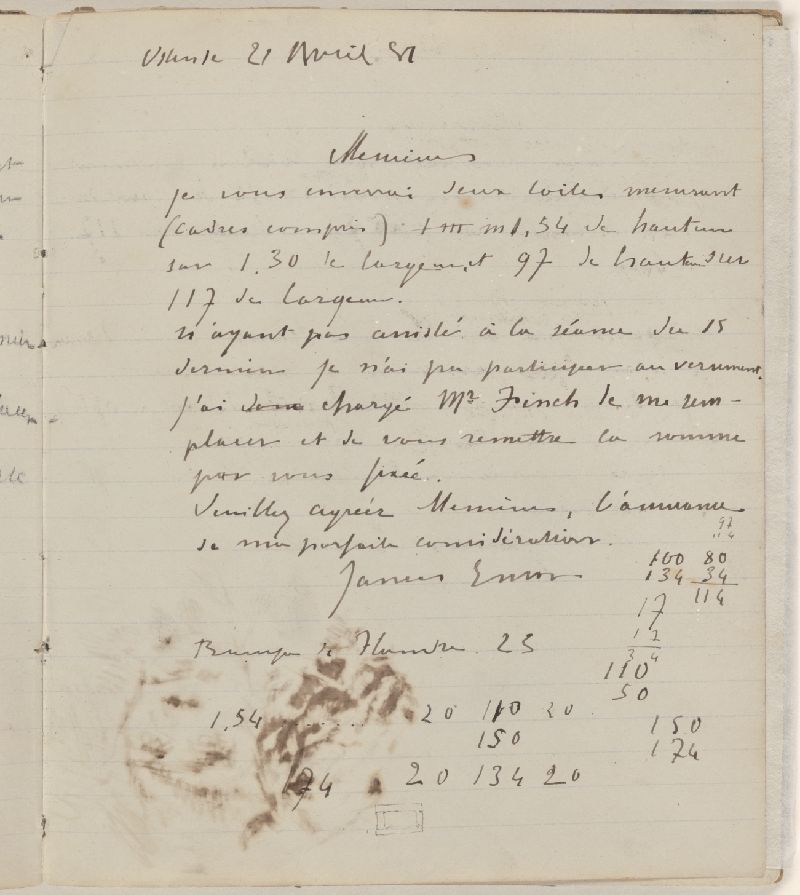 Ostende 21 Avril 81
Messieurs
je vous enverrai deux toiles mesurant
(cadres compris) 1,54 de hauteur
sur 1.30 de largeur et 97 de hauteur sur
117 de largeur.
n'ayant pas assisté à la séance du 15
dernier je n'ai pu participer au versement.
j'ai donc chargé Mr Finch de me rem-
placer et de vous remettre la somme
par vous fixée.
Veuillez agréer Messieurs, l'assurance
de ma parfaite considération.
James Ensor
97
114
100 80
134 34
17 114
12
34
Rampe de Flandre 23
110
50
1,54 ........ 20 110 20
150
150
174
174 20 134 20